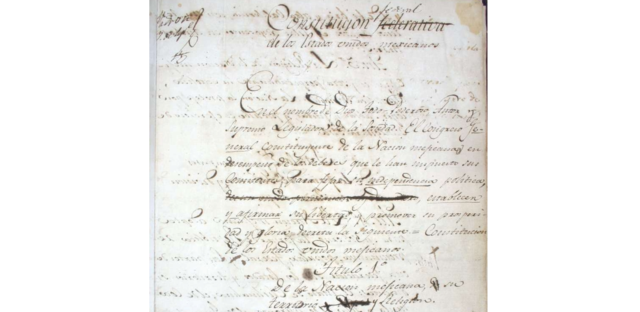 Constitucion federal federativa
de los estados unidos mexicanos
En el nombre de Dios Todo Poderoso, Autor y
Supremo Legislador de la sociedad. El Congreso Ge
neral Constituyente de la Nacion mexicana, en
desempeño de los deberes que le han impuesto sus
Comitentes, para fijar su independencia politica,
establecer
y afirmar su libertad y promover su properi
dad y gloria, decreta la siguiente = Constitucion
de los Estados unidos mexicanos
Titulo 1º
De la Nacion mexicana, su
territorio y Religion.